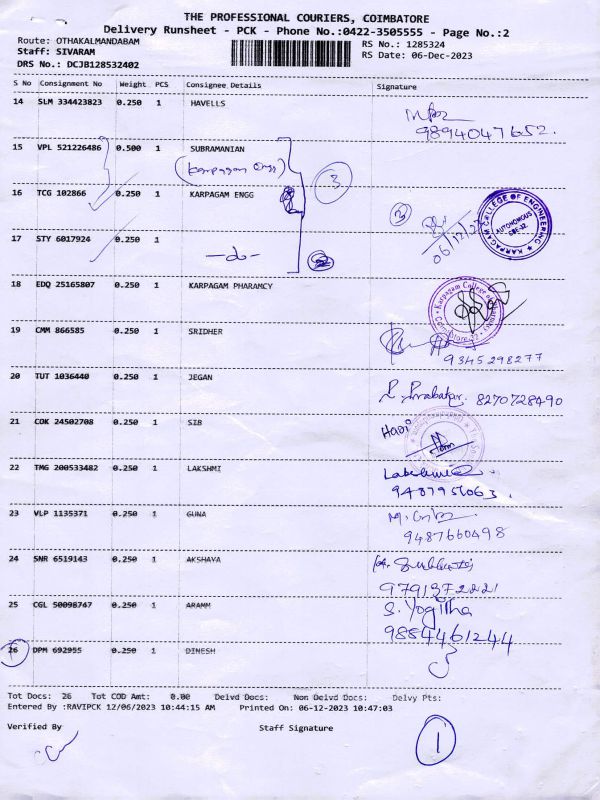 THE PROFESSIONAL COURIERS, COIMBATORE
Delivery Runsheet - PCK - Phone No.:0422-3505555 - Page No.:2
Route: OTHAKALMANDABAM
Staff: SIVARAM
DRS No.: DCJB128532402
RS No.: 1285324
RS Date: 06-Dec-2023
S No Consignment No Weight PCS Consignee Details Signature
14 SLM 334423823 0.250 1 HAVELLS
9894047652.
15 VPL 521226486 0.500 1 SUBRAMANIAN
(karpagam Engg)
3
16 TCG 102866 0.250 1 KARPAGAM ENGG
3
06/12/23
KARPAGAM COLLEGE OF ENGINEERING
AUTONOMOUS
CBE-32
17 STY 6017924 0.250 1
-do-
18 EDQ 25165807 0.250 1 KARPAGAM PHARAMCY
Karpagam College of Pharmacy
19 CMM 866585 0.250 1 SRIDHER
9345298277
20 TUT 1036440 0.250 1 JEGAN
P. Prabakar. 8270728490
21 COK 24502708 0.250 1 SIB
Hari
22 TMG 200533482 0.250 1 LAKSHMI
9487956063.
23 VLP 1135371 0.250 1 GUNA
9487660498
24 SNR 6519143 0.250 1 AKSHAYA
9791372221
25 CGL 50098747 0.250 1 ARAMM
S. Yogitha
9884461244
26 DPM 692955 0.250 1 DINESH
Tot Docs: 26 Tot COD Amt: 0.00 Delvd Docs: Non Delvd Docs: Delvy Pts:
Entered By :RAVIPCK 12/06/2023 10:44:15 AM Printed On: 06-12-2023 10:47:03
Verified By Staff Signature
1